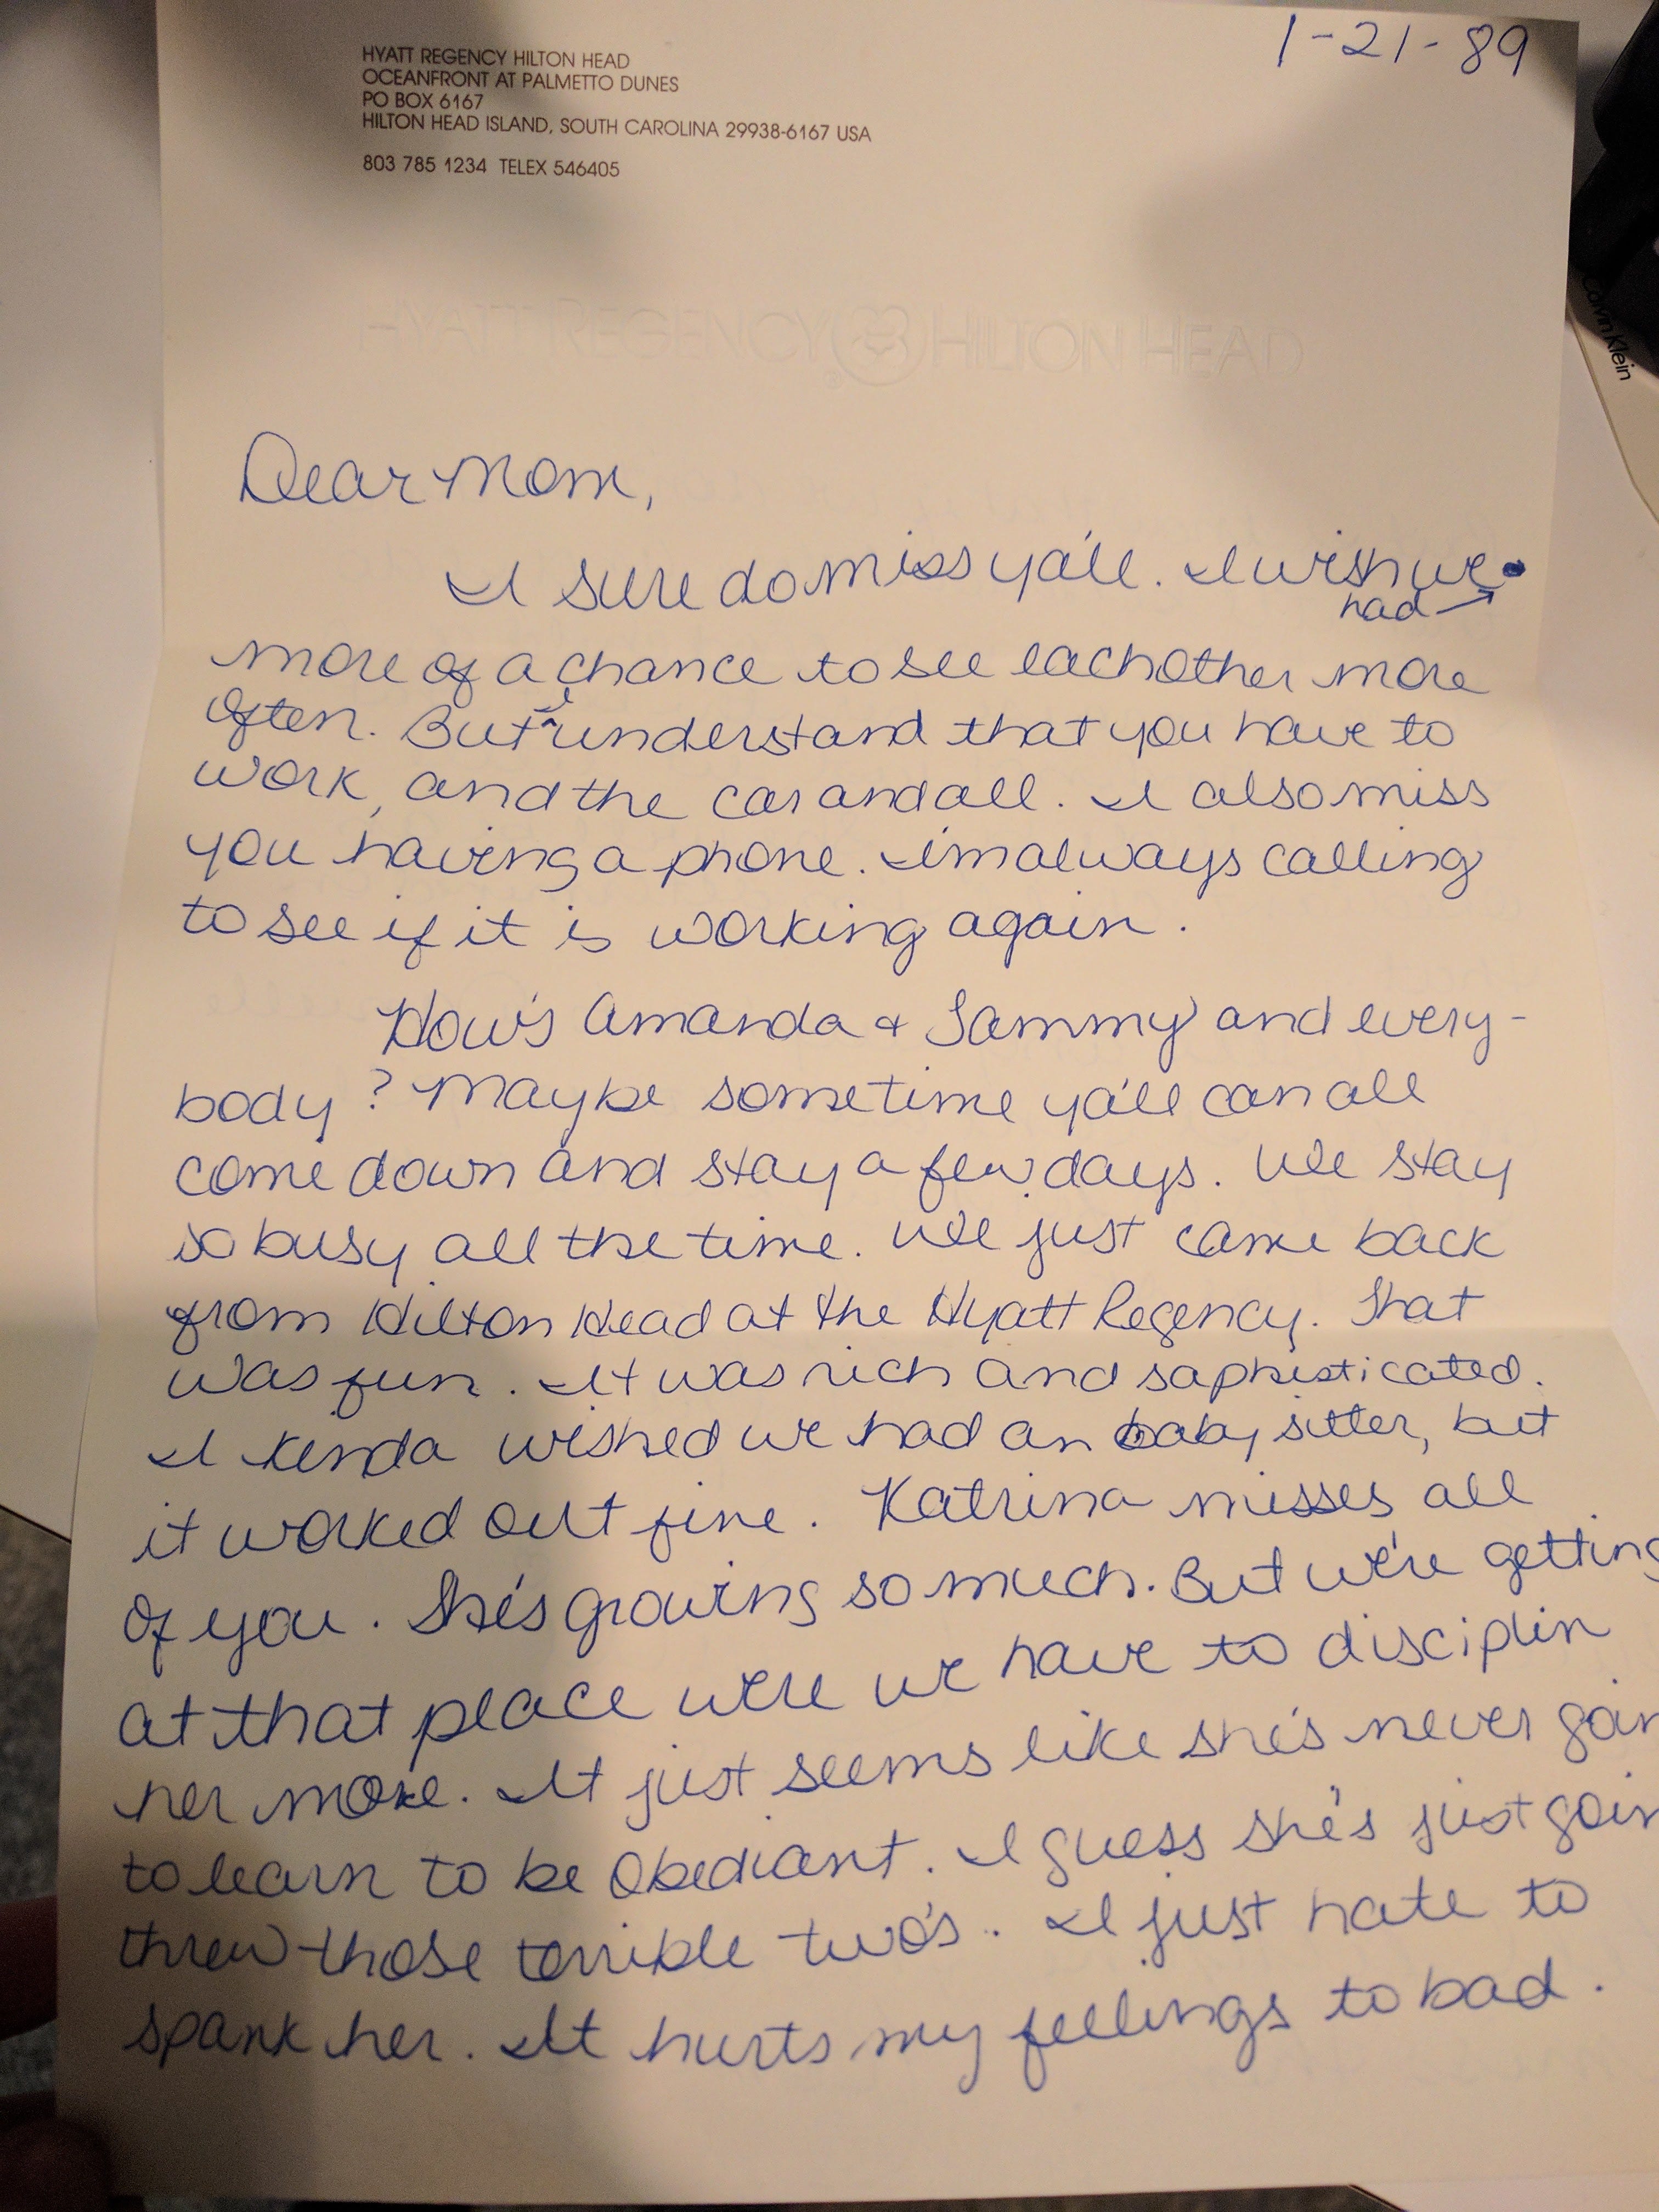 1-21-89
HYATT REGENCY HILTON HEAD
OCEANFRONT AT PALMETTO DUNES
PO BOX 6167
HILTON HEAD ISLAND, SOUTH CAROLINA 29938-6167 USA
803 785 1234 TELEX 546405
HYATT REGENCY HILTON HEAD
Calvin Klein
Dear Mom,
I sure do miss ya'll. I wish we
had →
more of a chance to see eachother more
often. But I understand that you have to
work, and the car and all. I also miss
you having a phone. I'm always calling
to see if it is working again.
How's Amanda & Sammy and every-
body? Maybe sometime ya'll can all
come down and stay a few days. We stay
so busy all the time. We just came back
from Hilton Head at the Hyatt Regency. That
was fun. It was rich and saphisticated.
I kinda wished we had an baby sitter, but
it worked out fine. Katrina misses all
of you. She's growing so much. But we're getting
at that place were we have to disciplin
her more. It just seems like she's never goin
to learn to be obediant. I guess she's just goin
threw those terrible two's. I just hate to
spank her. It hurts my feelings to bad.